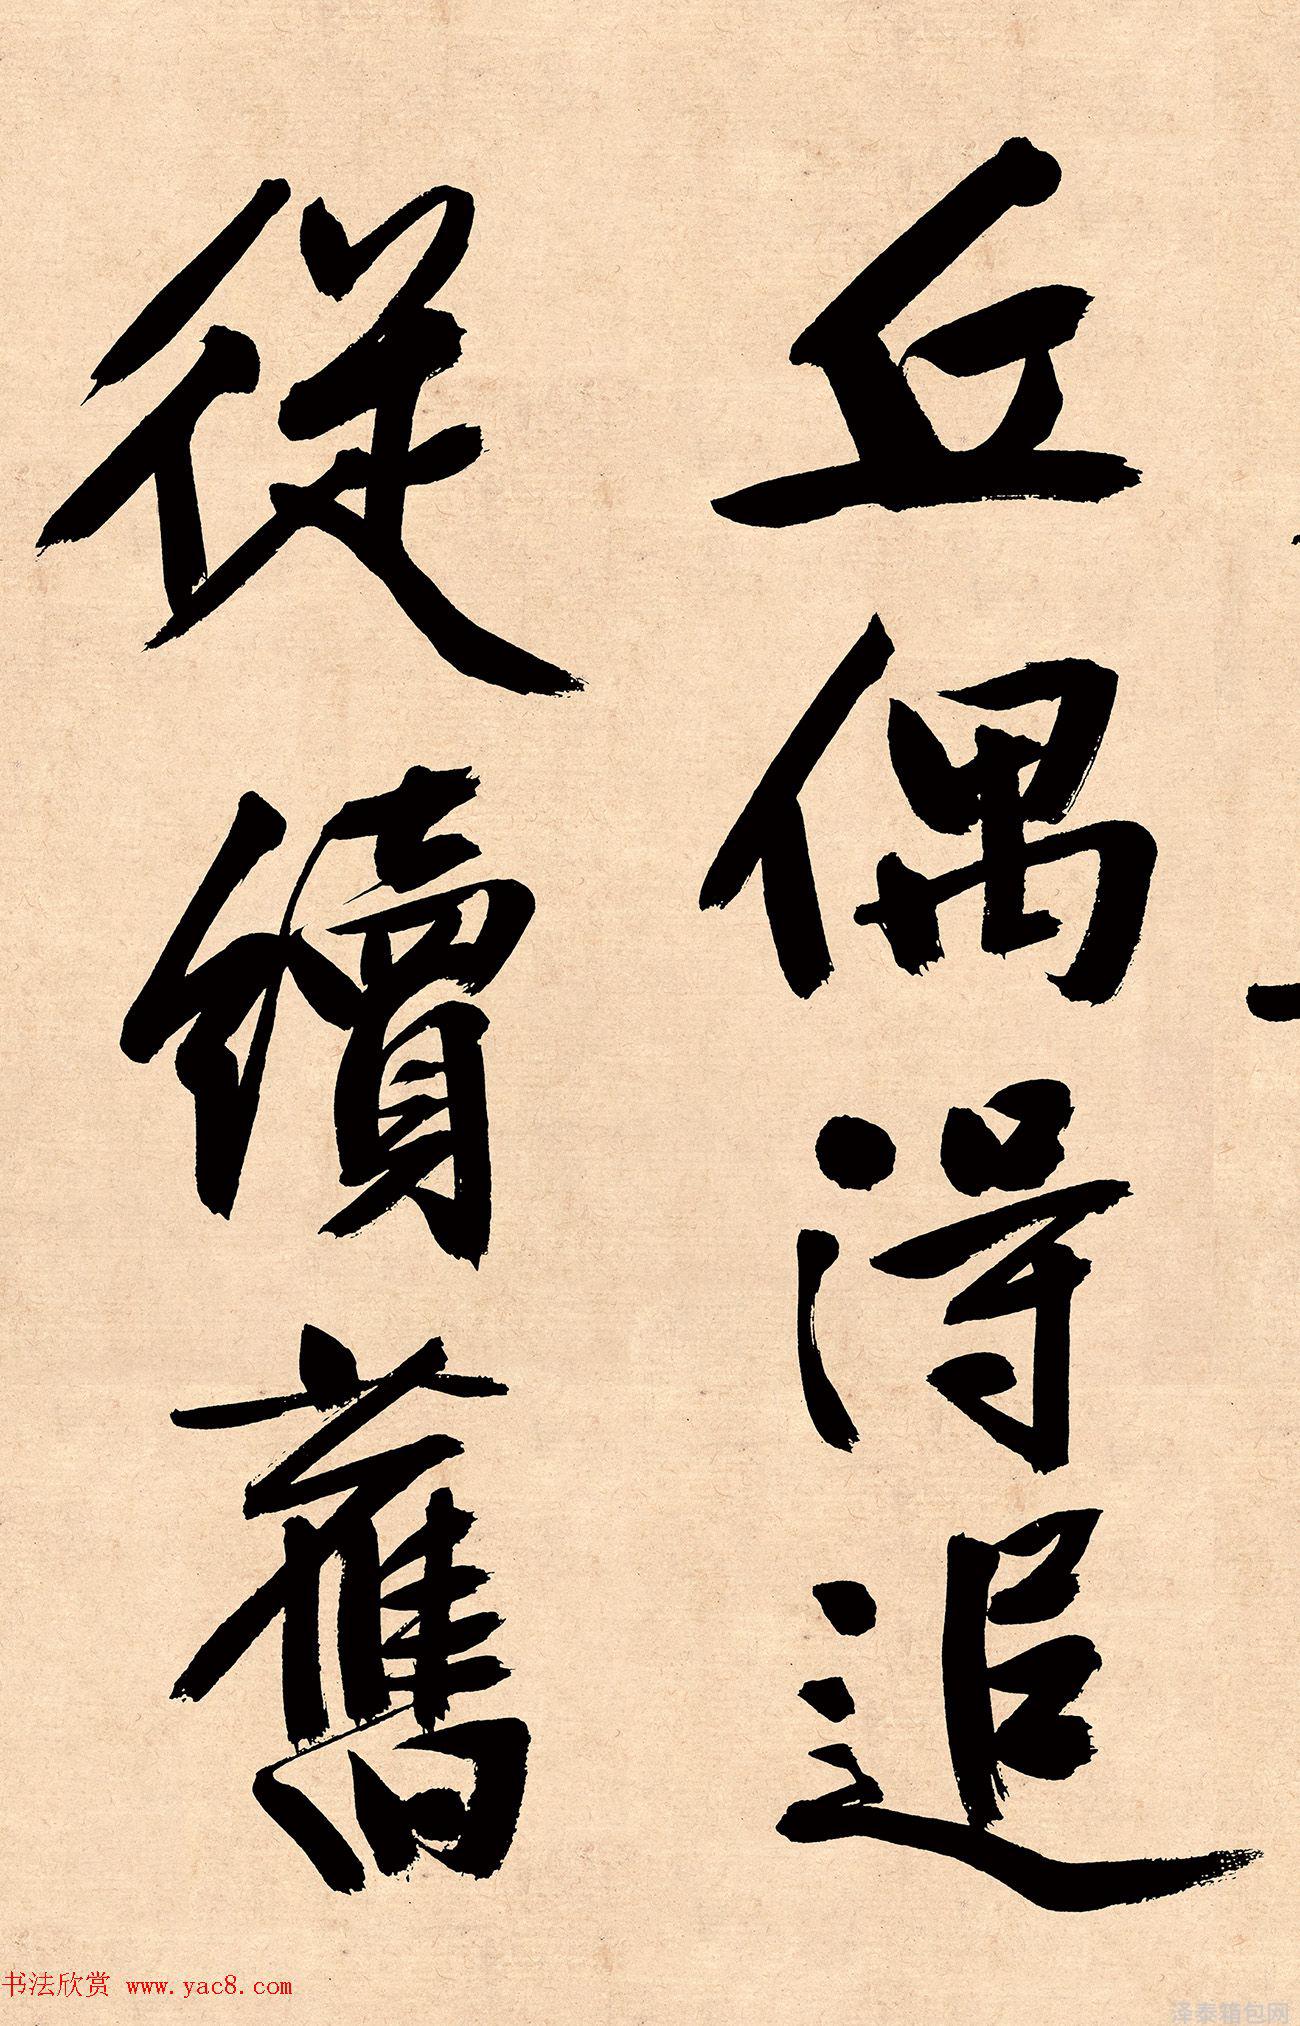 丘偶得追
從續舊
书法欣赏 www.yac8.com
泽泰箱包网